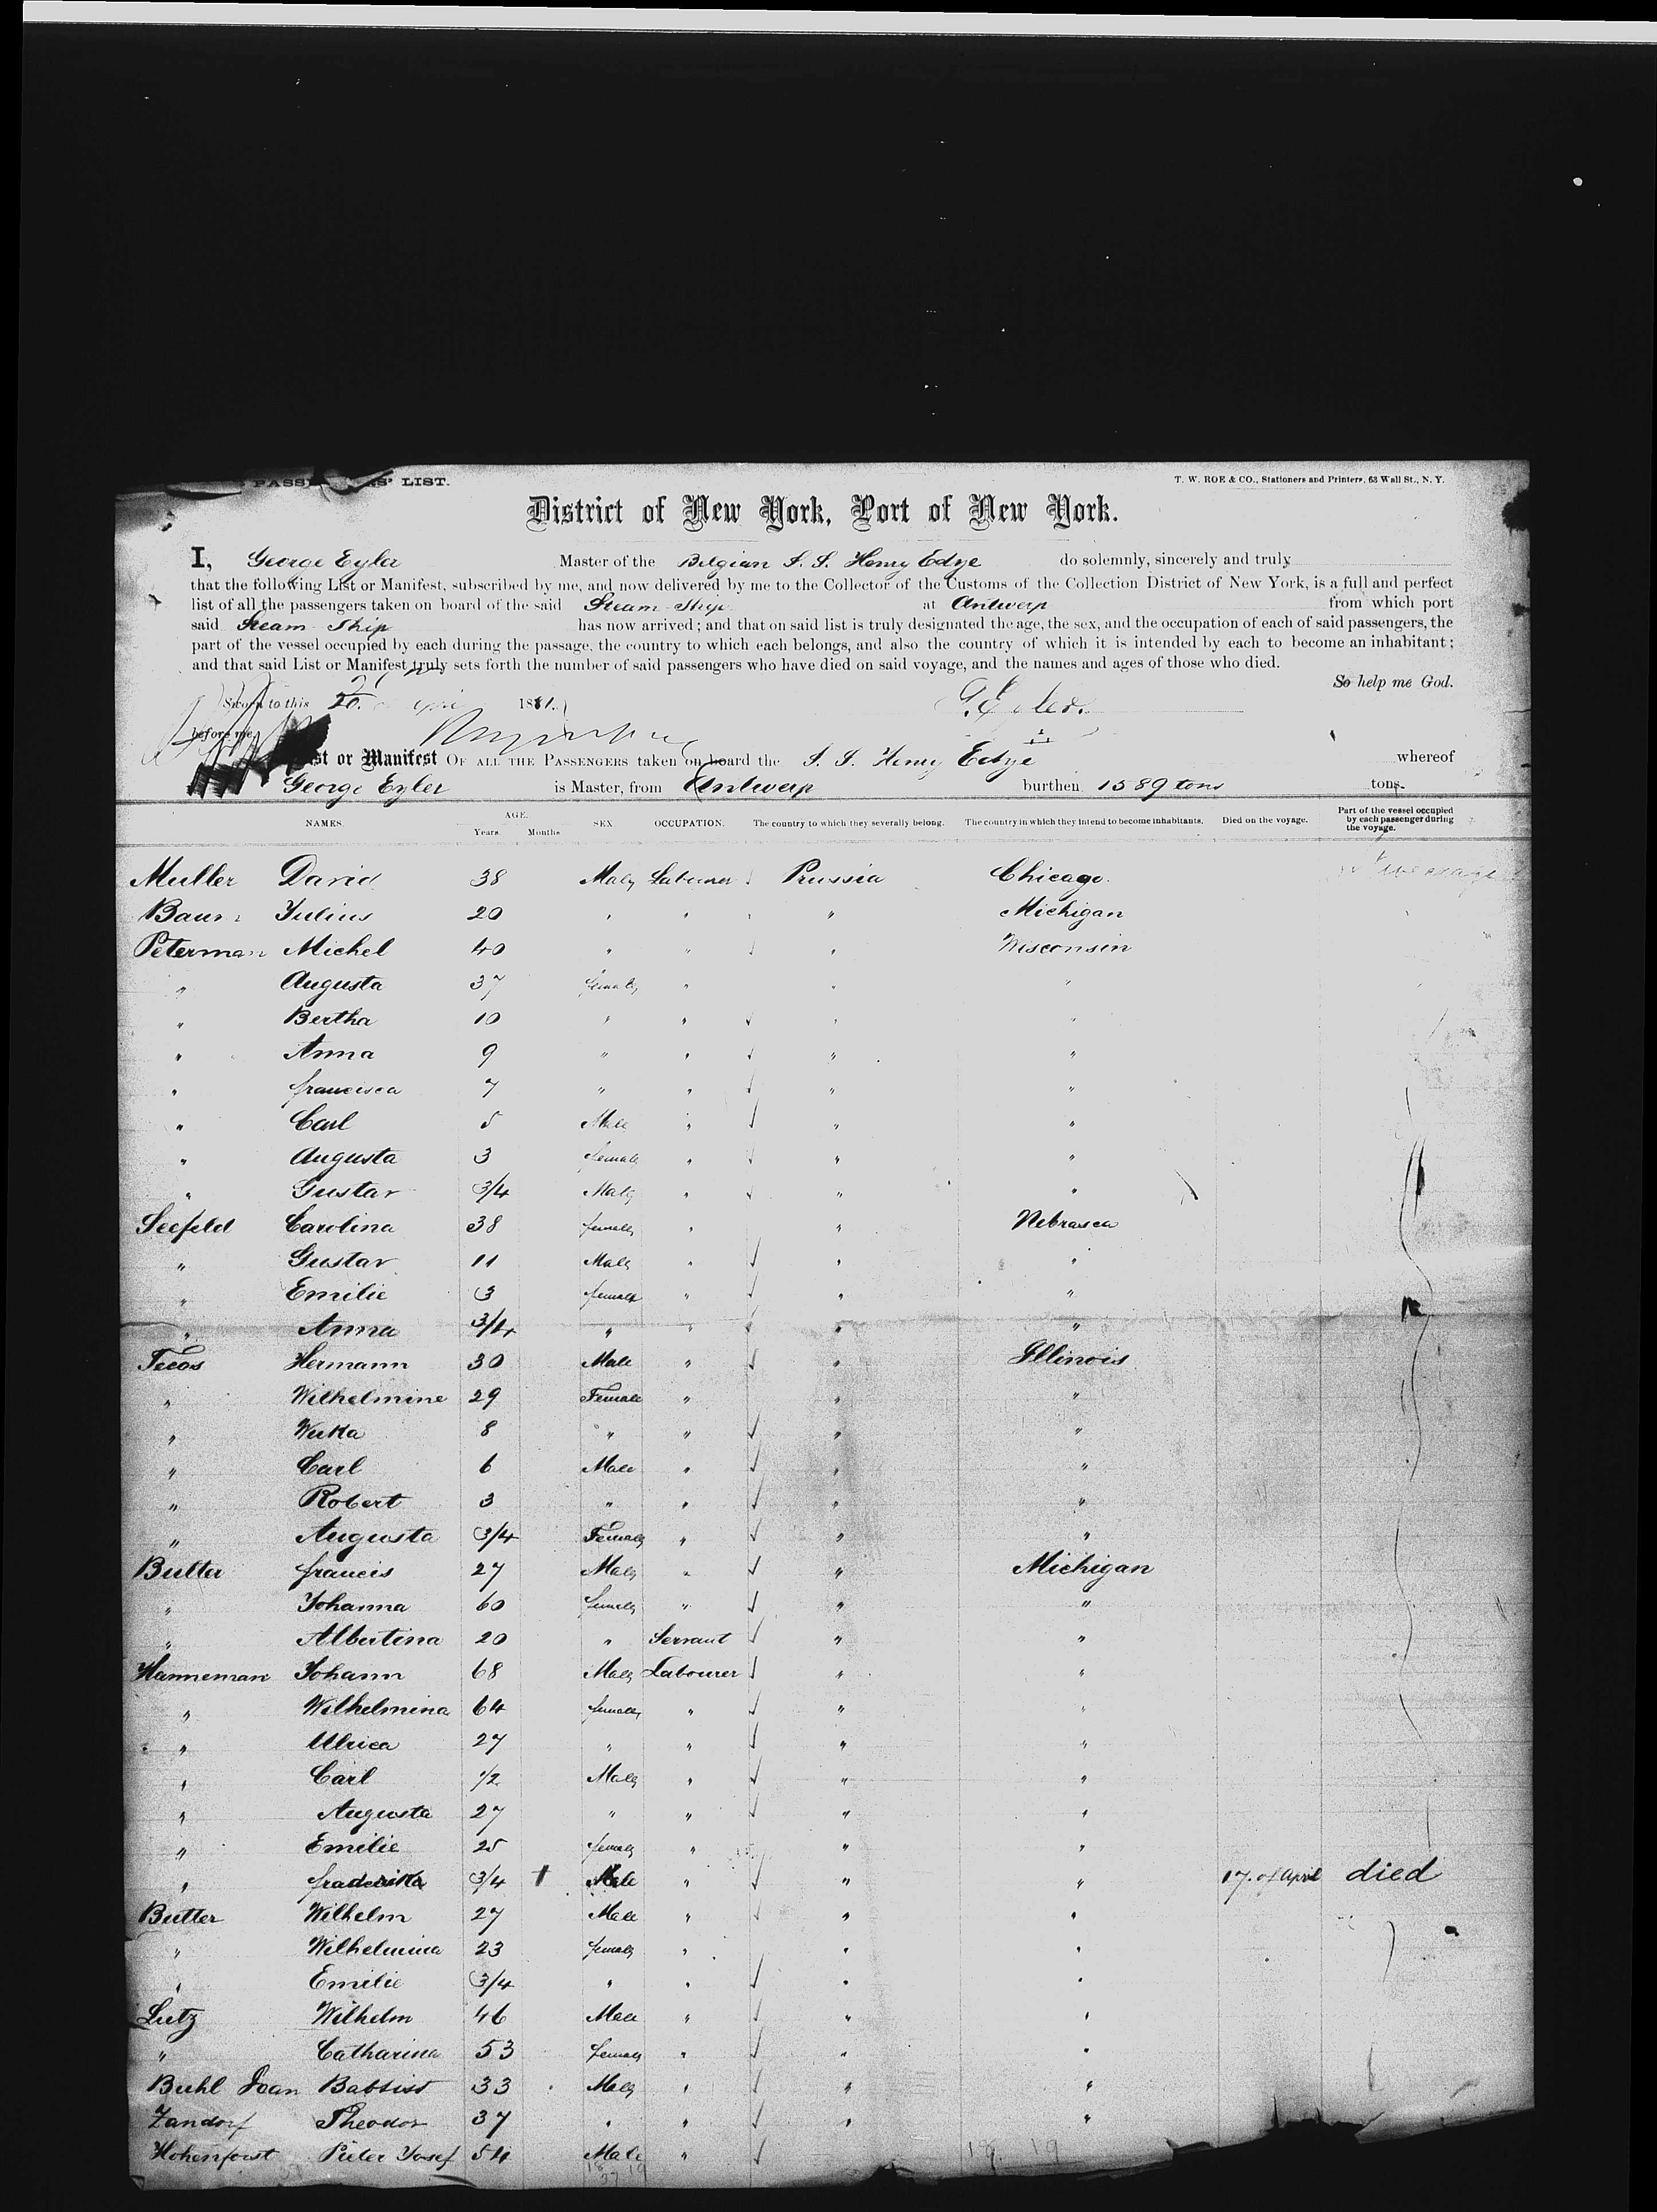 PASS LIST.
T. W. ROE & CO., Stationers and Printers, 63 Wall St., N. Y.
District of New York, Port of New York.
I, George Eyler Master of the Belgian S. S. Henry Edye do solemnly, sincerely and truly
that the following List or Manifest, subscribed by me, and now delivered by me to the Collector of the Customs of the Collection District of New York, is a full and perfect
list of all the passengers taken on board of the said Steam Ship at Antwerp from which port
said Steam Ship has now arrived; and that on said list is truly designated the age, the sex, and the occupation of each of said passengers, the
part of the vessel occupied by each during the passage, the country to which each belongs, and also the country of which it is intended by each to become an inhabitant;
and that said List or Manifest truly sets forth the number of said passengers who have died on said voyage, and the names and ages of those who died.
So help me God.
Sworn to this 1881.
before me,
List or Manifest OF ALL THE PASSENGERS taken on board the S. S. Henry Edye whereof
George Eyler is Master, from Antwerp burthen 1589 tons tons.
NAMES. AGE. Years. Months SEX OCCUPATION. The country to which they severally belong. The country in which they intend to become inhabitants. Died on the voyage. Part of the vessel occupied by each passenger during the voyage.
Muller David 38 Male Labourer Prussia Chicago
Baum Julius 20 " " " Michigan
Peterman Michel 40 " " " Wisconsin
" Augusta 37 female " " "
" Bertha 10 " " " "
" Anna 9 " " " "
" francisca 7 " " " "
" Carl 5 Male " " "
" Augusta 3 female " " "
" Gustav 3/4 Male " " "
Seefeld Carolina 38 female " " Nebrasca
" Gustav 11 Male " " "
" Emilie 3 female " " "
" Anna 3/4 " " " "
Tews Hermann 30 Male " " Illinois
" Wilhelmine 29 Female " " "
" 8 " " " "
" Carl 6 Male " " "
" Robert 3 " " " "
" Augusta 3/4 Female " " "
Butter francis 27 Male " " Michigan
" Johanna 60 female " " "
" Albertina 20 " Servant " "
Hanneman Johann 68 Male Labourer " "
" Wilhelmina 64 female " " "
" Ulrica 27 " " " "
" Carl 1/2 Male " " "
" Augusta 27 " " " "
" Emilie 25 female " " "
" fraderika 3/4 Male " " " 17. of April died
Butter Wilhelm 27 Male " " "
" Wilhelmina 23 female " " "
" Emilie 3/4 " " " "
Lutz Wilhelm 46 Male " " "
" Catharina 53 female " " "
Buhl Joan Babtist 33 Male " " "
Zandorf Theodor 37 " " " "
Hohenforst Pieter Josef 54 Male "